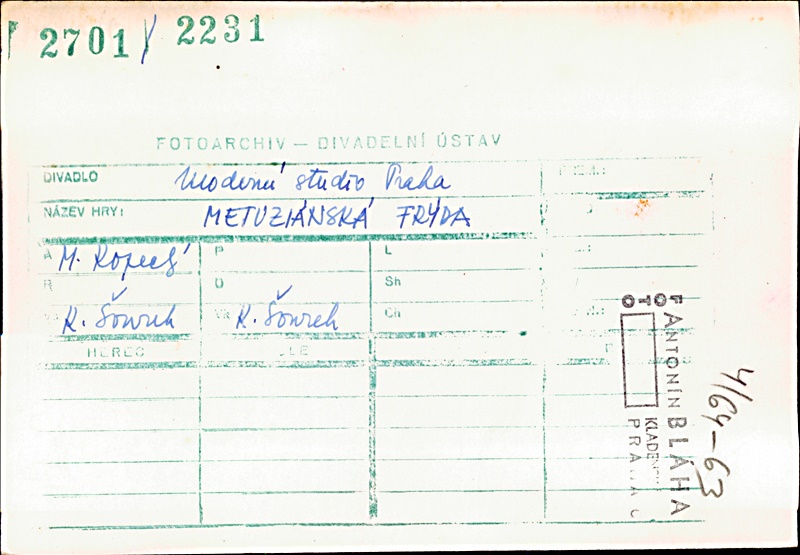 2701/ 2231
FOTOARCHIV — DIVADELNÍ ÚSTAV
DIVADLO Moderní studio Praha
NÁZEV HRY: METUZIÁNSKÁ FRÝDA
A M. Kopecký P L
R O Sh
K. Šourek VR K. Šourek Ch
HEREC
FOTO
ANTONÍN BLÁHA
PRAHA
4/64-63